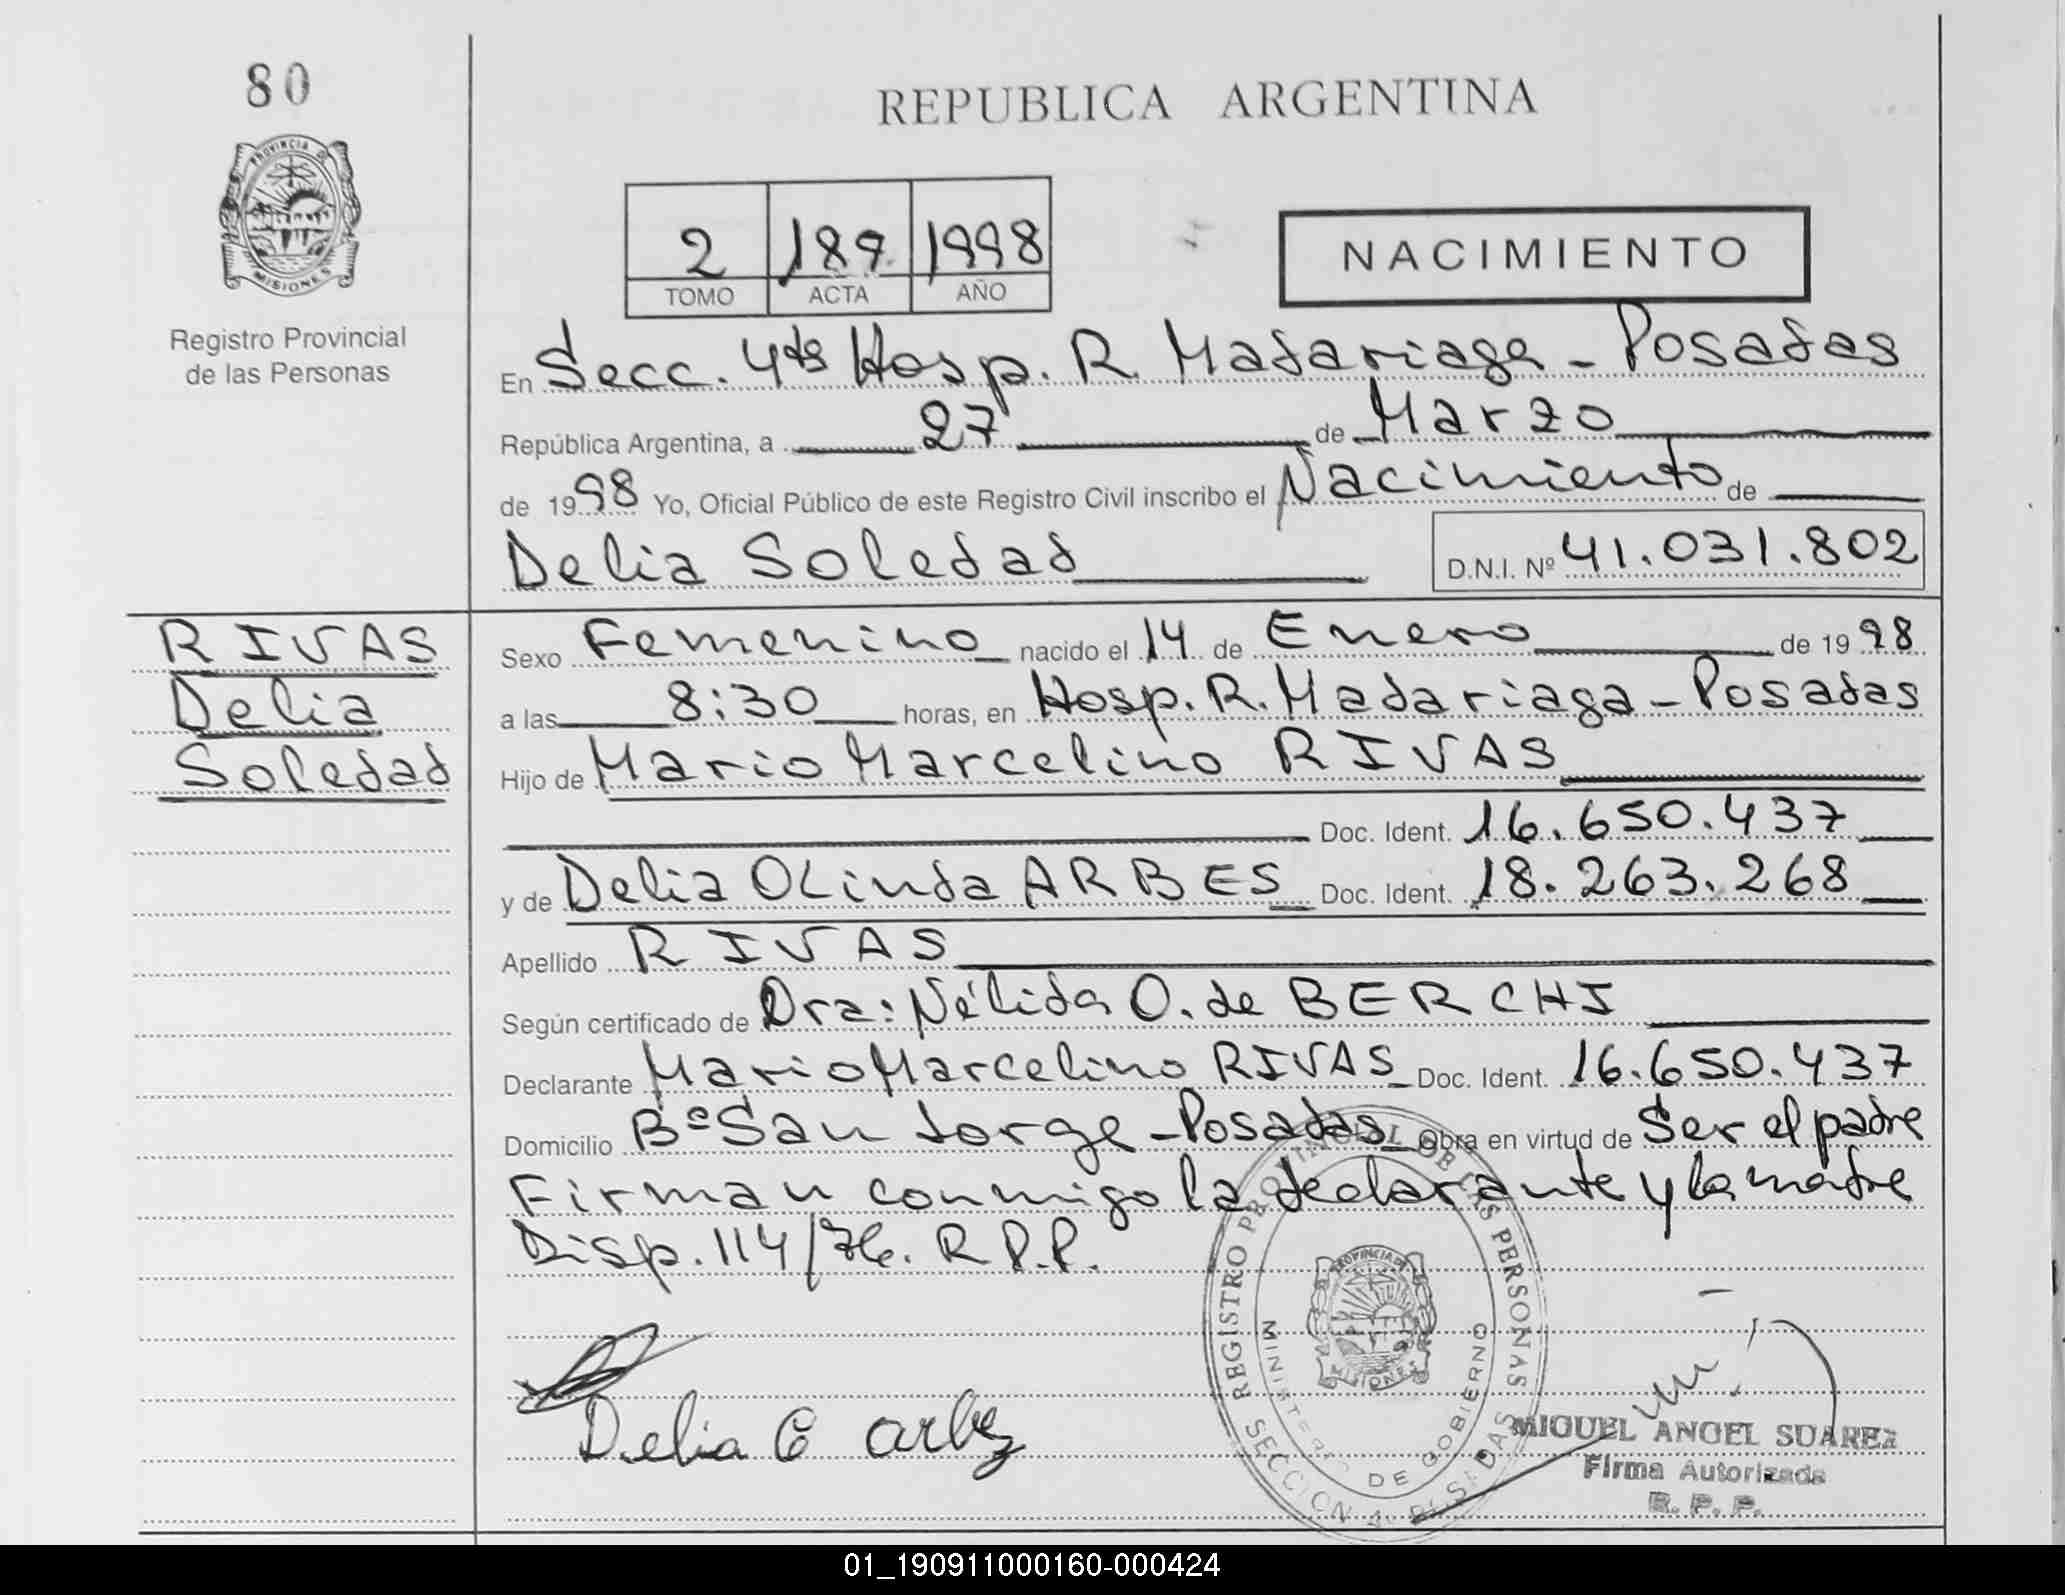 80
REPUBLICA ARGENTINA
PROVINCIA DE
MISIONES
Registro Provincial
de las Personas
2 189 1998
TOMO ACTA AÑO
NACIMIENTO
En Secc. 4ta Hosp. R. Madariaga - Posadas
República Argentina, a 27 de Marzo
de 1998 Yo, Oficial Público de este Registro Civil inscribo el Nacimiento de
Delia Soledad
D.N.I. Nº 41.031.802
RIVAS
Delia
Soledad
Sexo Femenino nacido el 14 de Enero de 1998
a las 8:30 horas, en Hosp. R. Madariaga - Posadas
Hijo de Mario Marcelino RIVAS
Doc. Ident. 16.650.437
y de Delia OLinda ARBES Doc. Ident. 18.263.268
Apellido RIVAS
Según certificado de Dra: Nélida O. de BERCHI
Declarante Mario Marcelino RIVAS Doc. Ident. 16.650.437
Domicilio Bº San Jorge - Posadas Obra en virtud de Ser el padre
Firman conmigo la declarante y la madre
Disp. 114/76. R.P.P.
REGISTRO PROVINCIAL DE LAS PERSONAS
MINISTERIO DE GOBIERNO
PROVINCIA DE
MISIONES
SECCION 4. POSADAS
Delia O arbes
MIGUEL ANGEL SUAREZ
Firma Autorizada
R. P. P.
01_190911000160-000424